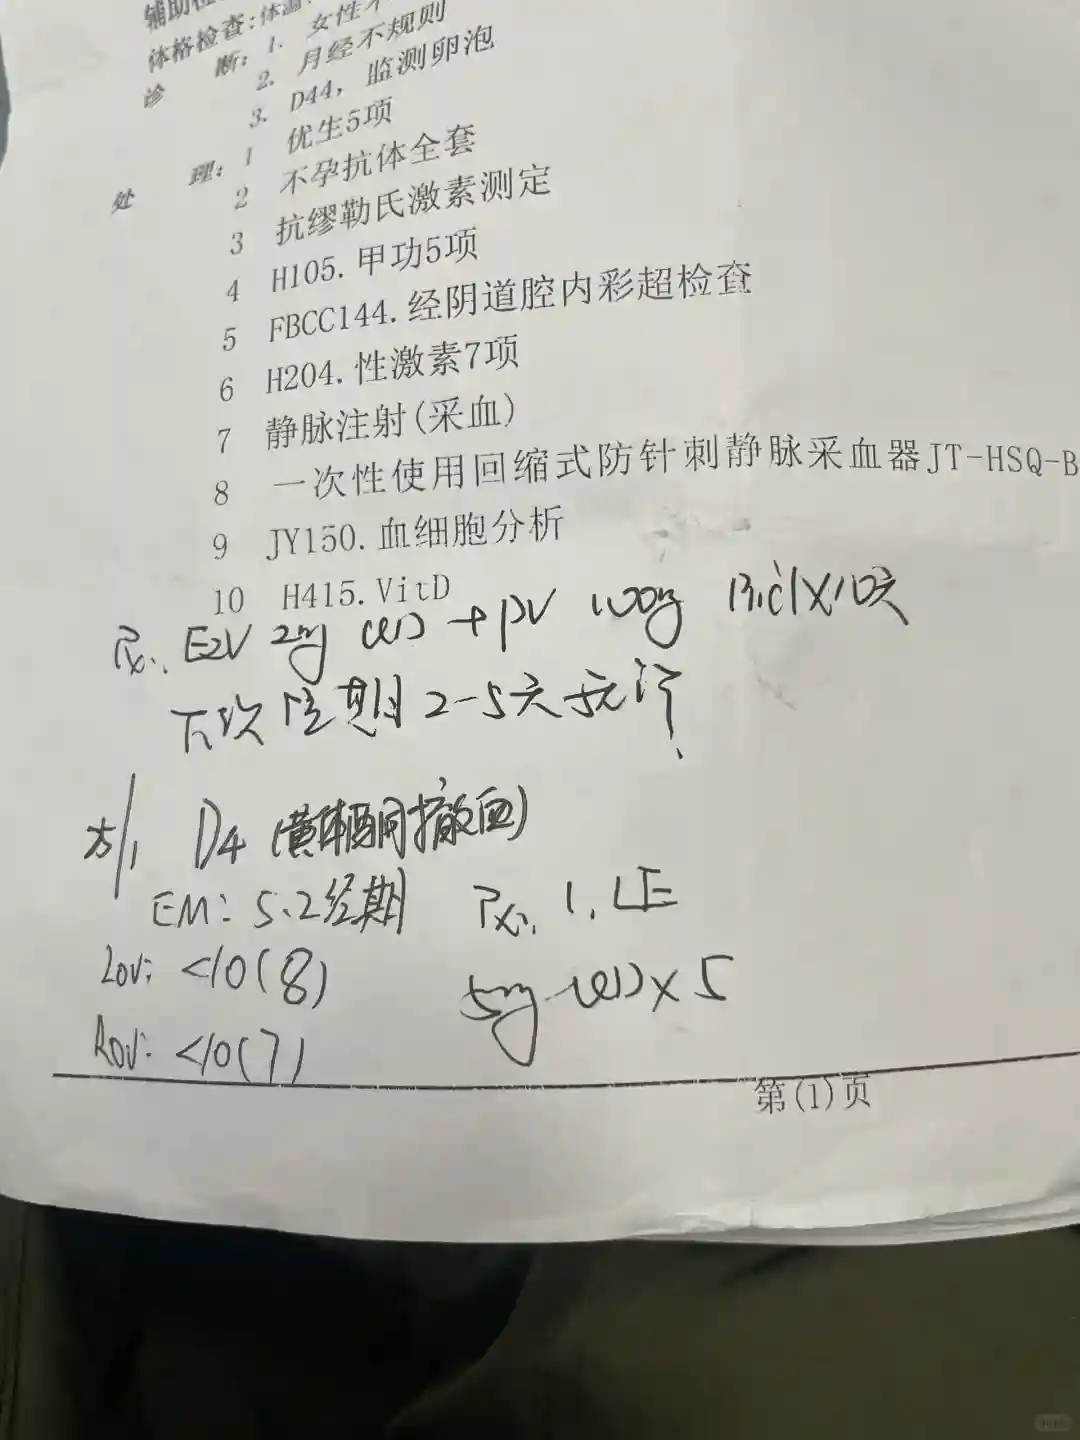 体格检查:体温
诊 断: 1. 女性不
2. 月经不规则
3. D44, 监测卵泡
处 理: 1 优生5项
2 不孕抗体全套
3 抗缪勒氏激素测定
4 H105.甲功5项
5 FBCC144.经阴道腔内彩超检查
6 H204.性激素7项
7 静脉注射(采血)
8 一次性使用回缩式防针刺静脉采血器JT-HSQ-B
9 JY150.血细胞分析
10 H415.VitD
Rx: E2V 2mg + PV 100mg ×10天
下次月经期2-5天
D4 (黄体酮撤血)
EM: 5.2 经期 Rx: 1. LE
Lov: <10(8) 5mg ×5
Rov: <10(7)
第(1)页